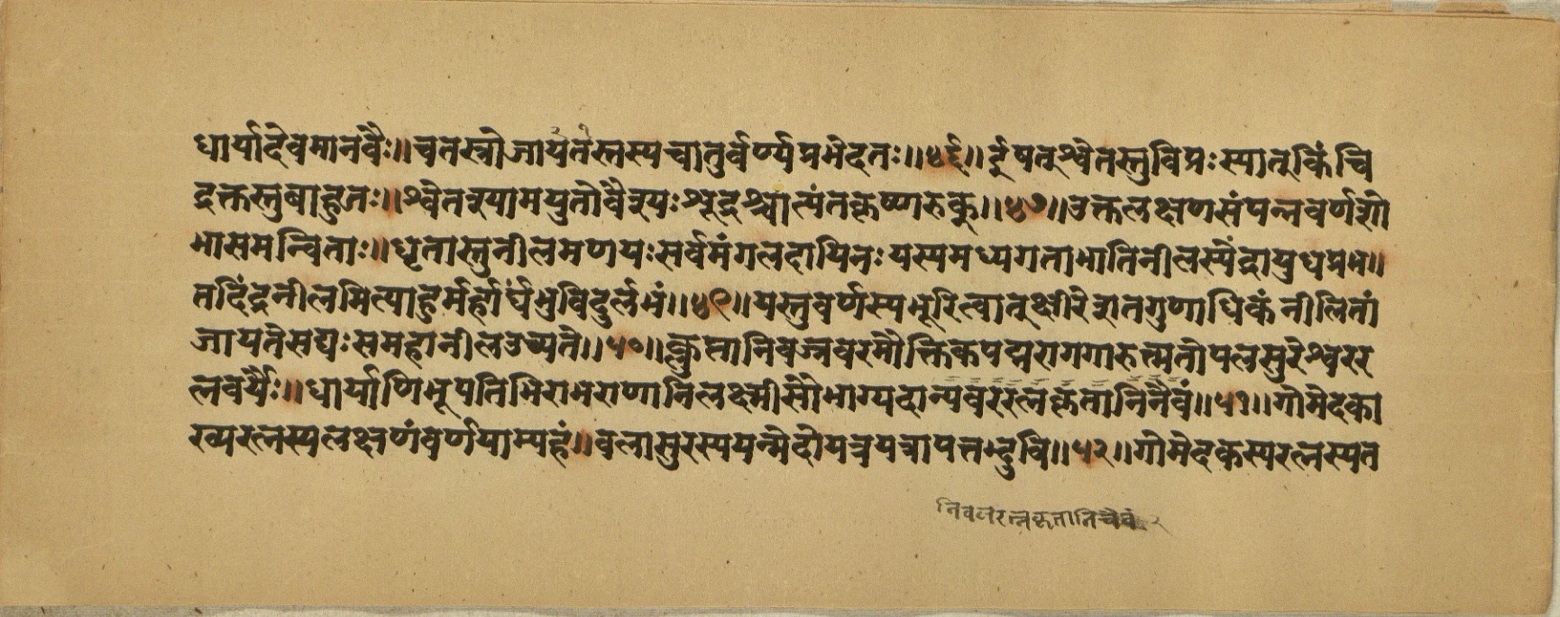 धार्यादेवमानवैः॥चतस्त्रोजायतेस्तस्यचातुर्वर्ण्यप्रभेदतः॥४६॥र्दूषतश्वेतस्तुविप्रःस्यात्किंचि
द्रक्तस्तुबाहुतः॥श्वेतश्यामयुतोवैश्यःशूद्रश्चात्यंतकृष्णरुक्॥४७॥उक्तलक्षणसंपन्नवर्णशो
भासमन्विताः॥धृतास्तुनीलमणयःसर्वमंगलदायिनःयस्यमध्यगताभातिनीलस्येंद्रायुधप्रभ॥
तदिंद्रनीलमित्याहुर्महार्घंभुविदुर्लभं॥४९॥यस्तुवर्णस्यभूरित्वात्क्षीरेशतगुणाधिकंनीलितां
जायतेसद्यःसमहानीलउच्यते॥५०॥कॢप्तानिवज्रवरमौक्तिकपद्मरागगारुत्मतोपलसुरेश्वरर
लवर्यैः॥धार्याणिभूपतिभिराभराणानिलक्ष्मीसौभाग्यदान्यवररत्नकृतानिनैवं॥५१॥गोमेदका
ख्यरत्नस्यलक्षणंवर्णयाम्यहं॥बलासुरस्ययन्मेदोयत्रयत्रापतद्भुवि॥५२॥गोमेदकस्यरत्नस्यत